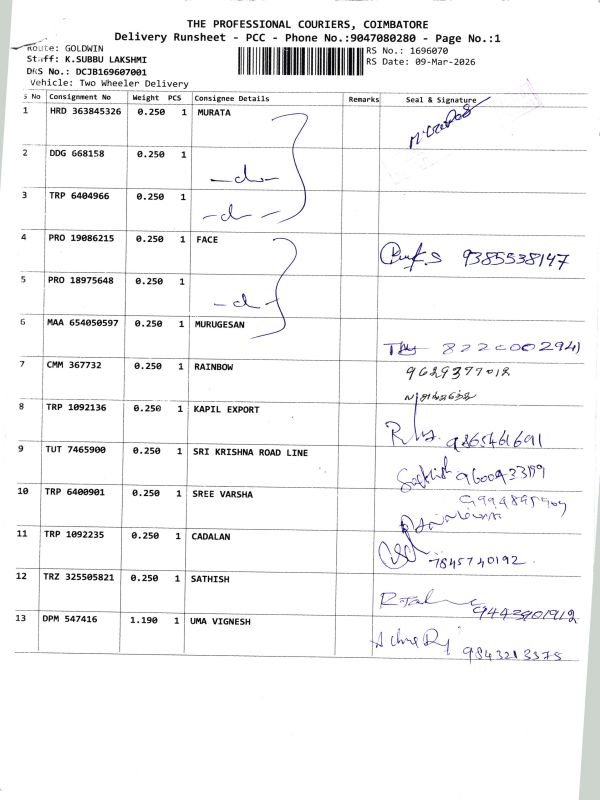 THE PROFESSIONAL COURIERS, COIMBATORE
Delivery Runsheet - PCC - Phone No.:9047080280 - Page No.:1
Route: GOLDWIN
Staff: K.SUBBU LAKSHMI
DRS No.: DCJB169607001
Vehicle: Two Wheeler Delivery
RS No.: 1696070
RS Date: 09-Mar-2026
S No Consignment No Weight PCS Consignee Details Remarks Seal & Signature
1 HRD 363845326 0.250 1 MURATA
2 DDG 668158 0.250 1 -do-
3 TRP 6404966 0.250 1 -do-
4 PRO 19086215 0.250 1 FACE 9385538147
5 PRO 18975648 0.250 1 -do-
6 MAA 654050597 0.250 1 MURUGESAN 8220002941
7 CMM 367732 0.250 1 RAINBOW 9629377012
8 TRP 1092136 0.250 1 KAPIL EXPORT 9865461691
9 TUT 7465900 0.250 1 SRI KRISHNA ROAD LINE Sathish
10 TRP 6400901 0.250 1 SREE VARSHA
11 TRP 1092235 0.250 1 CADALAN 7845740192
12 TRZ 325505821 0.250 1 SATHISH 9443901912
13 DPM 547416 1.190 1 UMA VIGNESH 9843213375